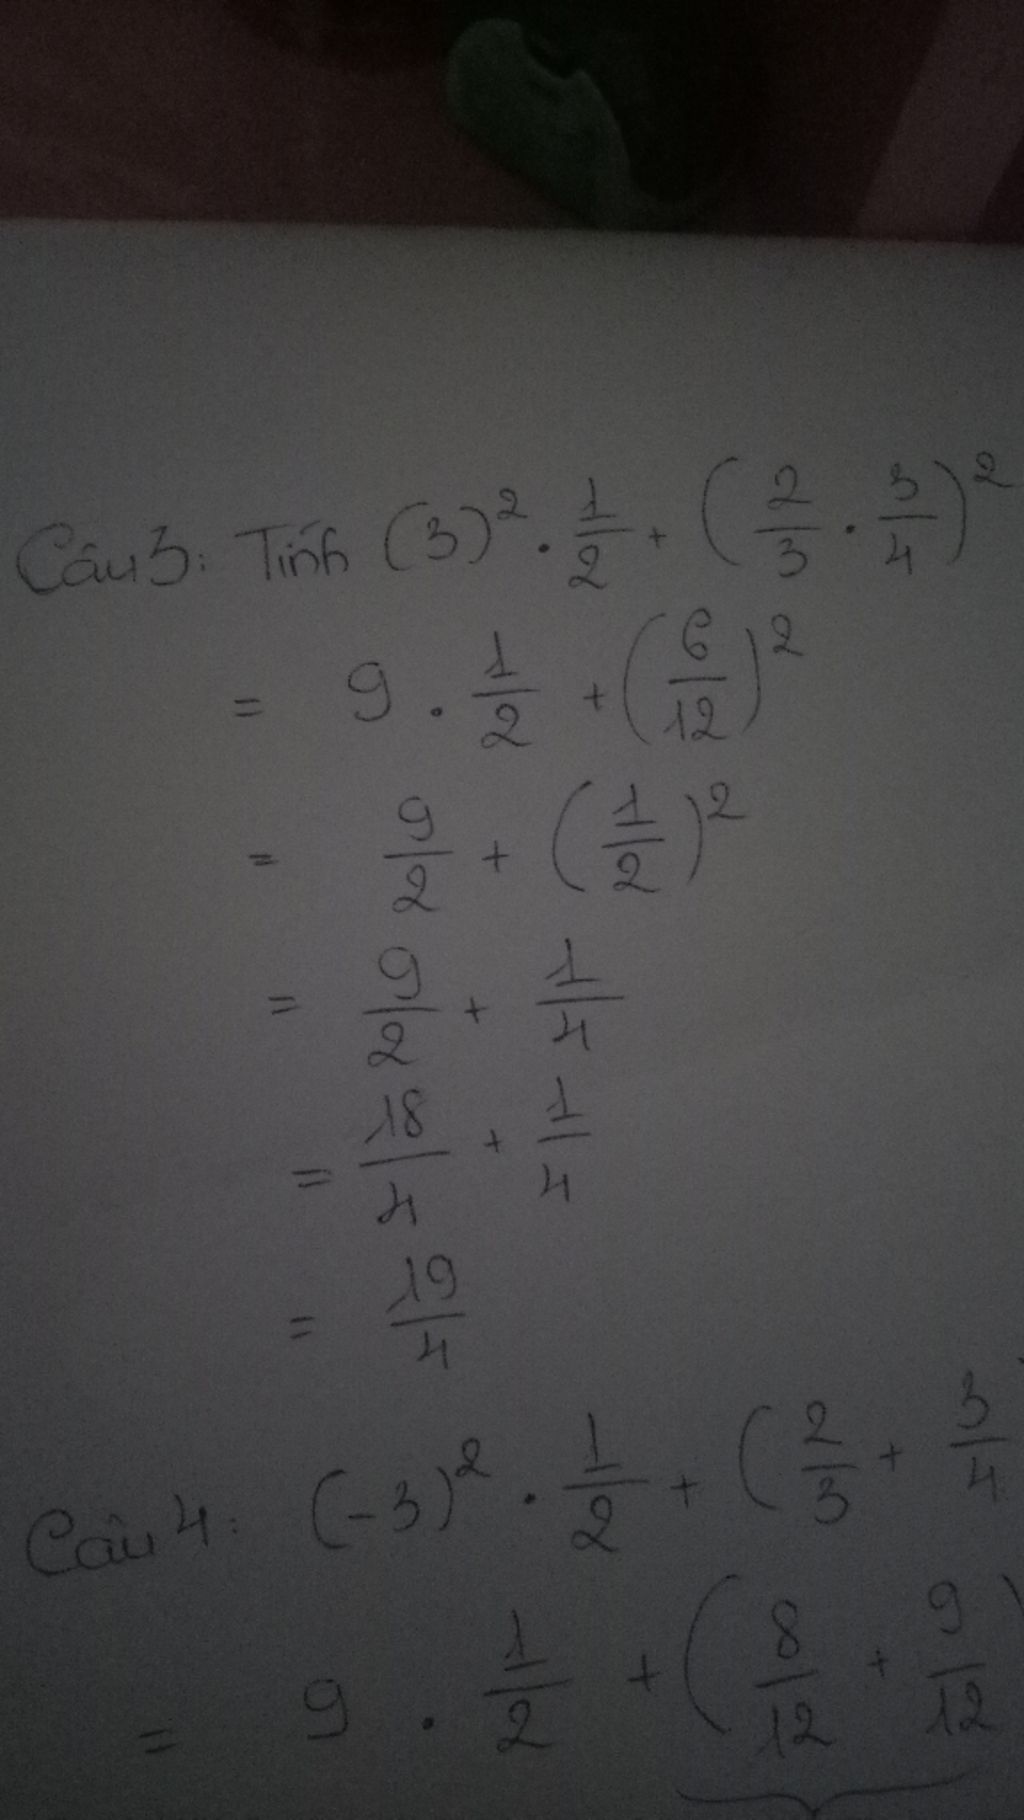 Câu 3: Tính (3)² · 1/2 + (2/3 · 3/4)²
= 9 · 1/2 + (6/12)²
= 9/2 + (1/2)²
= 9/2 + 1/4
= 18/4 + 1/4
= 19/4
Câu 4: (-3)² · 1/2 + (2/3 + 3/4
= 9 · 1/2 + (8/12 + 9/12)